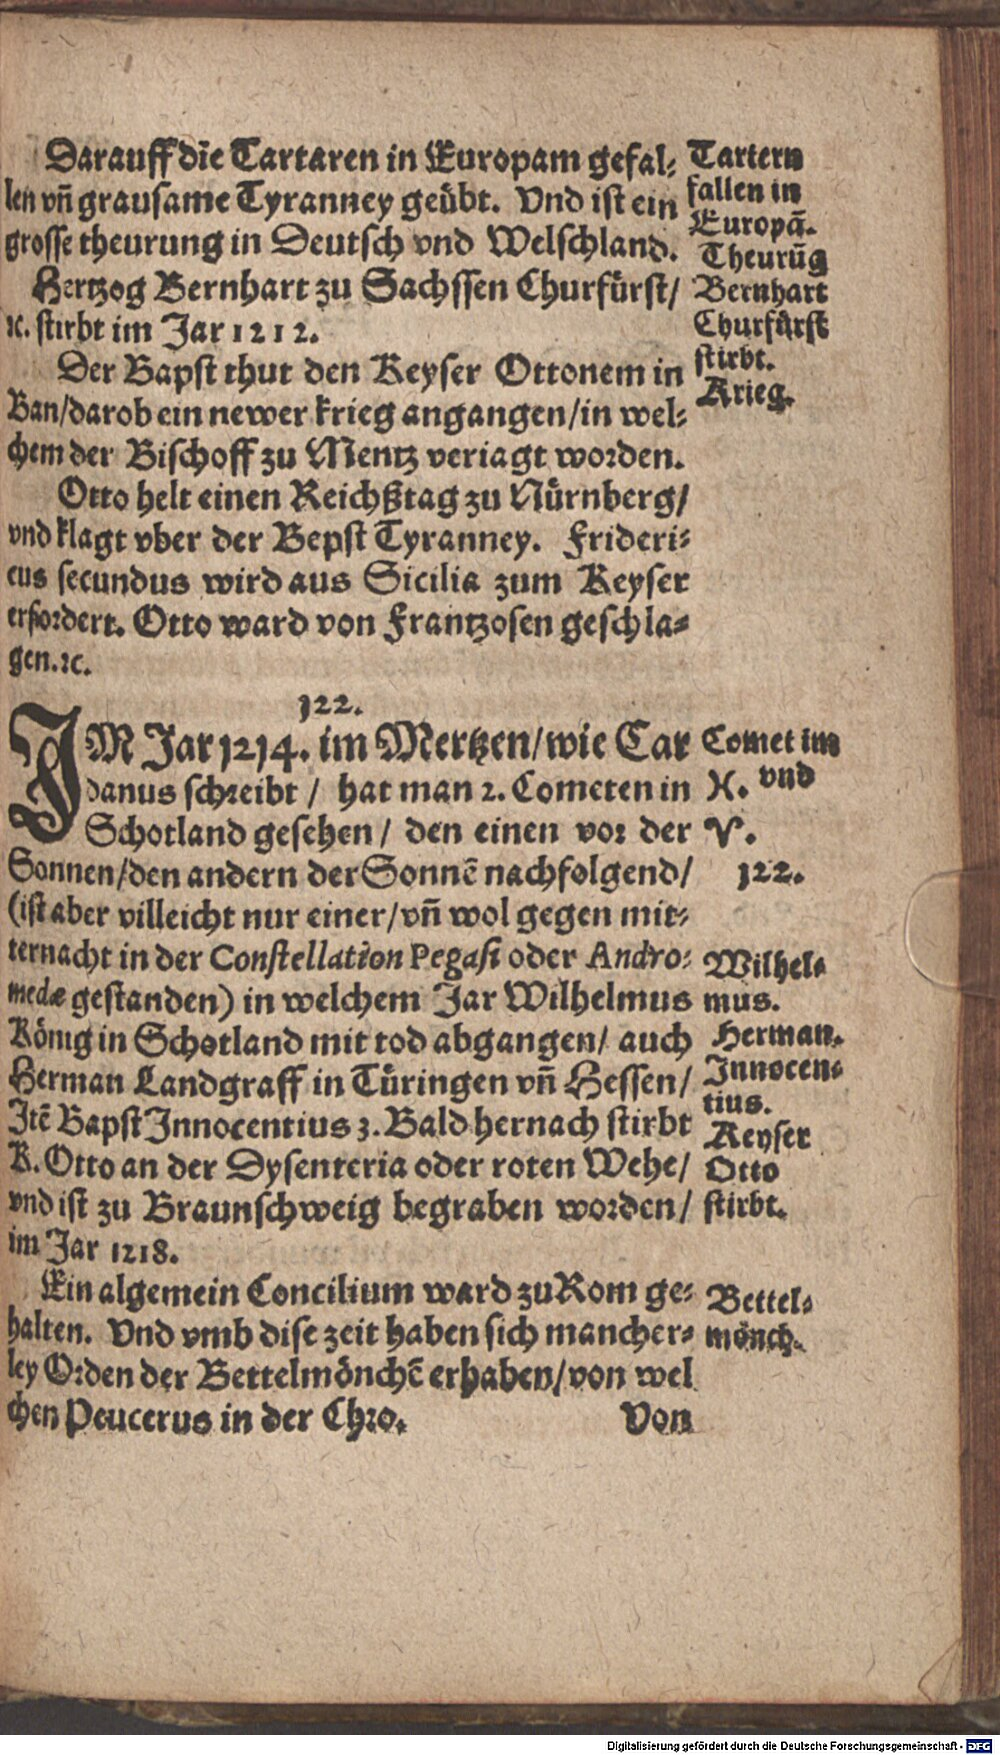 Darauff die Tartaren in Europam gefal-
len vñ grausame Tyranney geübt. Vnd ist ein
grosse theurung in Deutsch vnd Welschland.
Hertzog Bernhart zu Sachssen Churfürst/
ꝛc. stirbt im Jar 1212.
Der Bapst thut den Keyser Ottonem in
Ban/darob ein newer krieg angangen/in wel-
chem der Bischoff zu Mentz veriagt worden.
Otto helt einen Reichßtag zu Nürnberg/
vnd klagt vber der Bepst Tyranney. Frideri-
cus secundus wird aus Sicilia zum Keyser
erfordert. Otto ward von Frantzosen geschla-
gen.ꝛc.
Tartern
fallen in
Europã.
Theurũg
Bernhart
Churfürst
stirbt.
Krieg.
122.
IM Jar 1214. im Mertzen/wie Car
danus schreibt / hat man 2. Cometen in
Schotland gesehen/ den einen vor der
Sonnen/den andern der Sonnẽ nachfolgend/
(ist aber villeicht nur einer/vñ wol gegen mit-
ternacht in der Constellation Pegasi oder Andro-
medæ gestanden) in welchem Jar Wilhelmus
König in Schotland mit tod abgangen/ auch
Herman Landgraff in Türingen vñ Hessen/
Itẽ Bapst Innocentius 3. Bald hernach stirbt
K. Otto an der Dysenteria oder roten Wehe/
vnd ist zu Braunschweig begraben worden/
im Jar 1218.
Ein algemein Concilium ward zu Rom ge-
halten. Vnd vmb dise zeit haben sich mancher-
ley Orden der Bettelmönchẽ erhaben/von wel
chen Peucerus in der Chro.
Von
Comet im
♓. vnd
♈.
122.
Wilhel-
mus.
Herman.
Innocen-
tius.
Keyser
Otto
stirbt.
Bettel-
mönch.
Digitalisierung gefördert durch die Deutsche Forschungsgemeinschaft - DFG